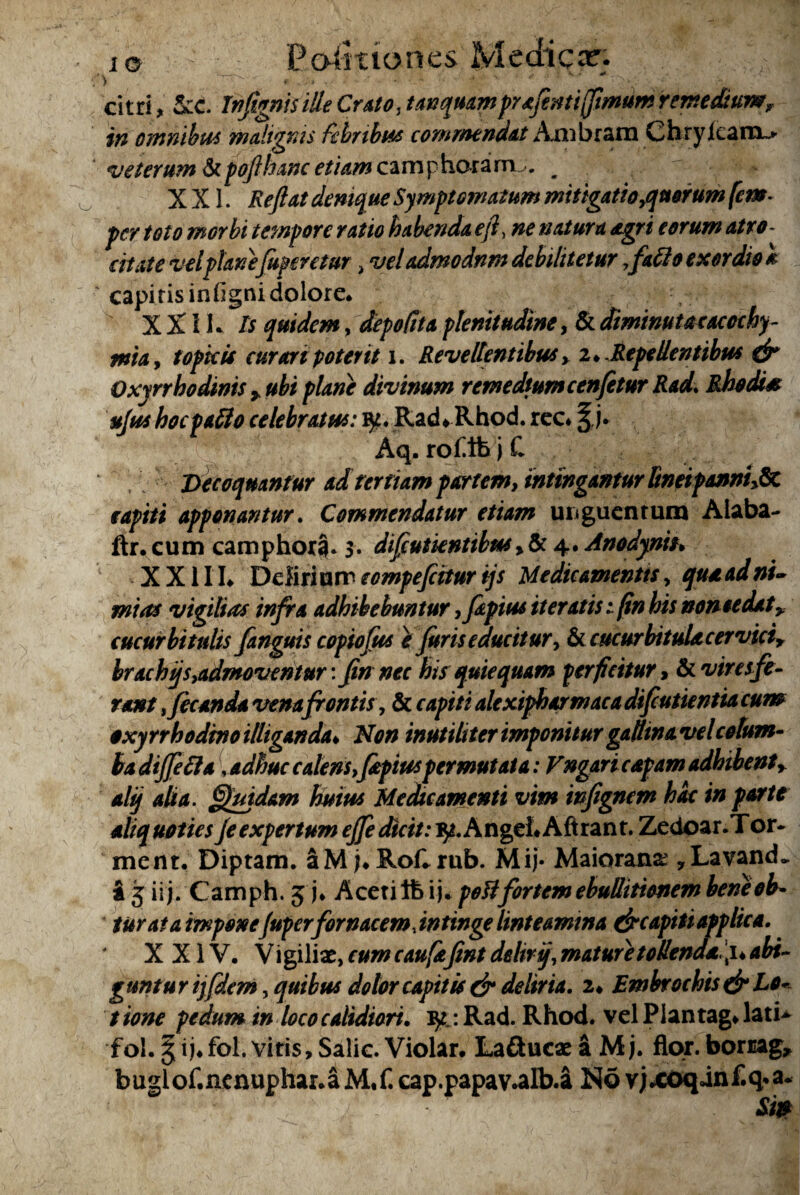 10 Positiones Medicæ.
citri, &c. Insignis ille Crato, tanquam præsentissimum remedium,
in omnibus malignis febribus commendat Ambram Chryseam
veterum & post hanc etiam camphoram.
XXI. Restat denique Symptomatum mitigatio, quorum sem-
per toto morbi tempore ratio habenda est, ne natura ægri eorum atro-
citate vel plane superetur, vel admodnm debilitetur, facto exordio à
capitis insigni dolore.
XXII. Is quidem, deposita plenitudine, & diminuta cacochy-
mia, topicis curari poterit 1. Revellentibus, 2. Repellentibus &
Oxyrrhodinis, ubi plane divinum remedium censetur Rad. Rhodiæ
usus hoc pacto celebratus: ℞. Rad. Rhod. rec. ℥ j.
Aq. ros. ℔ j ß.
Decoquantur ad tertiam partem, intingantur linei panni, &
capiti apponantur. Commendatur etiam unguentum Alaba-
str. cum camphorâ. 3. discutientibus, & 4. Anodynis.
XXIII. Delirium compescitur ijs Medicamentis, quæ ad ni-
mias vigilias infra adhibebuntur, sæpius iteratis: sin his non cedat,
cucurbitulis sanguis copiosus è suris educitur, & cucurbitulæ cervici,
brachijs, admoventur: sin nec his quiequam perficitur, & vires fe-
rant, secanda vena frontis, & capiti alexipharmaca discutientia cum
oxyrrhodino illiganda. Non inutiliter imponitur gallina vel colum-
ba dissecta, adhuc calens, sæpius permutata: Vngari capam adhibent,
alij alia. Quidam huius Medicamenti vim insignem hâc in parte
aliquoties se expertum esse dicit: ℞. Angel. Astrant. Zedoar. Tor-
ment. Diptam. â M j. Ros. rub. M ij. Maioranæ, Lavand.
â ʒ iij. Camph. ʒ j. Aceti ℔ ij. post fortem ebullitionem bene ob-
turata impone super fornacem, intinge linteamina & capiti applica.
XXIV. Vigiliæ, cum causæ sint delirij, mature tollendæ. 1. abi-
guntur ijsdem, quibus dolor capitis & deliria. 2. Embrochis & Lo-
tione pedum in loco calidiori. ℞: Rad. Rhod. vel Plantag. lati-
fol. ℥ ij. fol. vitis, Salic. Violar. Lactucæ â M j. flor. borrag,
buglos. nenuphar. â M. ß. cap. papav. alb. â No vj. coq. in s. q. a.
Sin